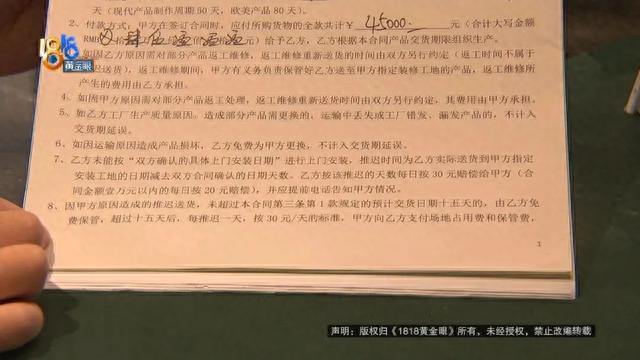 天（现代产品制作周期 50 天，欧美产品 80 天）。
2、付款方式：甲方在签订合同时，应付所购货物的全款共计￥ 45000. 元（合计大写金额
RMB 拾 元）给予乙方，乙方根据本合同产品交货期限组织生产。
1818
黄金眼
如因乙方原因需对部分产品返工维修，返工维修重新送货的时间由双方另行约定（返工时间不属于
迟送货），返工维修期间，甲方有义务负责保管好乙方送至甲方指定装修工地的产品，返工维修所
产生的费用由乙方承担。
4、如因甲方原因需对部分产品返工处理，返工维修重新送货时间由双方另行约定，其费用由甲方承担。
5、如乙方工厂生产质量原因，造成部分产品需更换的，运输中丢失或工厂错发、漏发产品的，不计入
交货期延误。
6、如因运输原因造成产品损坏，乙方免费为甲方更换，不计入交货期延误。
7、乙方未能按“双方确认的具体上门安装日期”进行上门安装，推迟时间为乙方实际送货到甲方指定
安装工地的日期减去双方合同确认的日期天数。乙方按该推迟的天数每日按 30 元赔偿给甲方（合
同金额壹万元以内的每日按 20 元赔偿），并应提前电话告知甲方情况。
8、因甲方原因造成的推迟送货，未超过本合同第三条第 1 款规定的预计交货日期十五天的，由乙方免
费保管，超过十五天后，每推迟一天，按 30 元/天的标准，甲方向乙方支付场地占用费和保管费，
3
声明：版权归《1818黄金眼》所有，未经授权，禁止改编转载